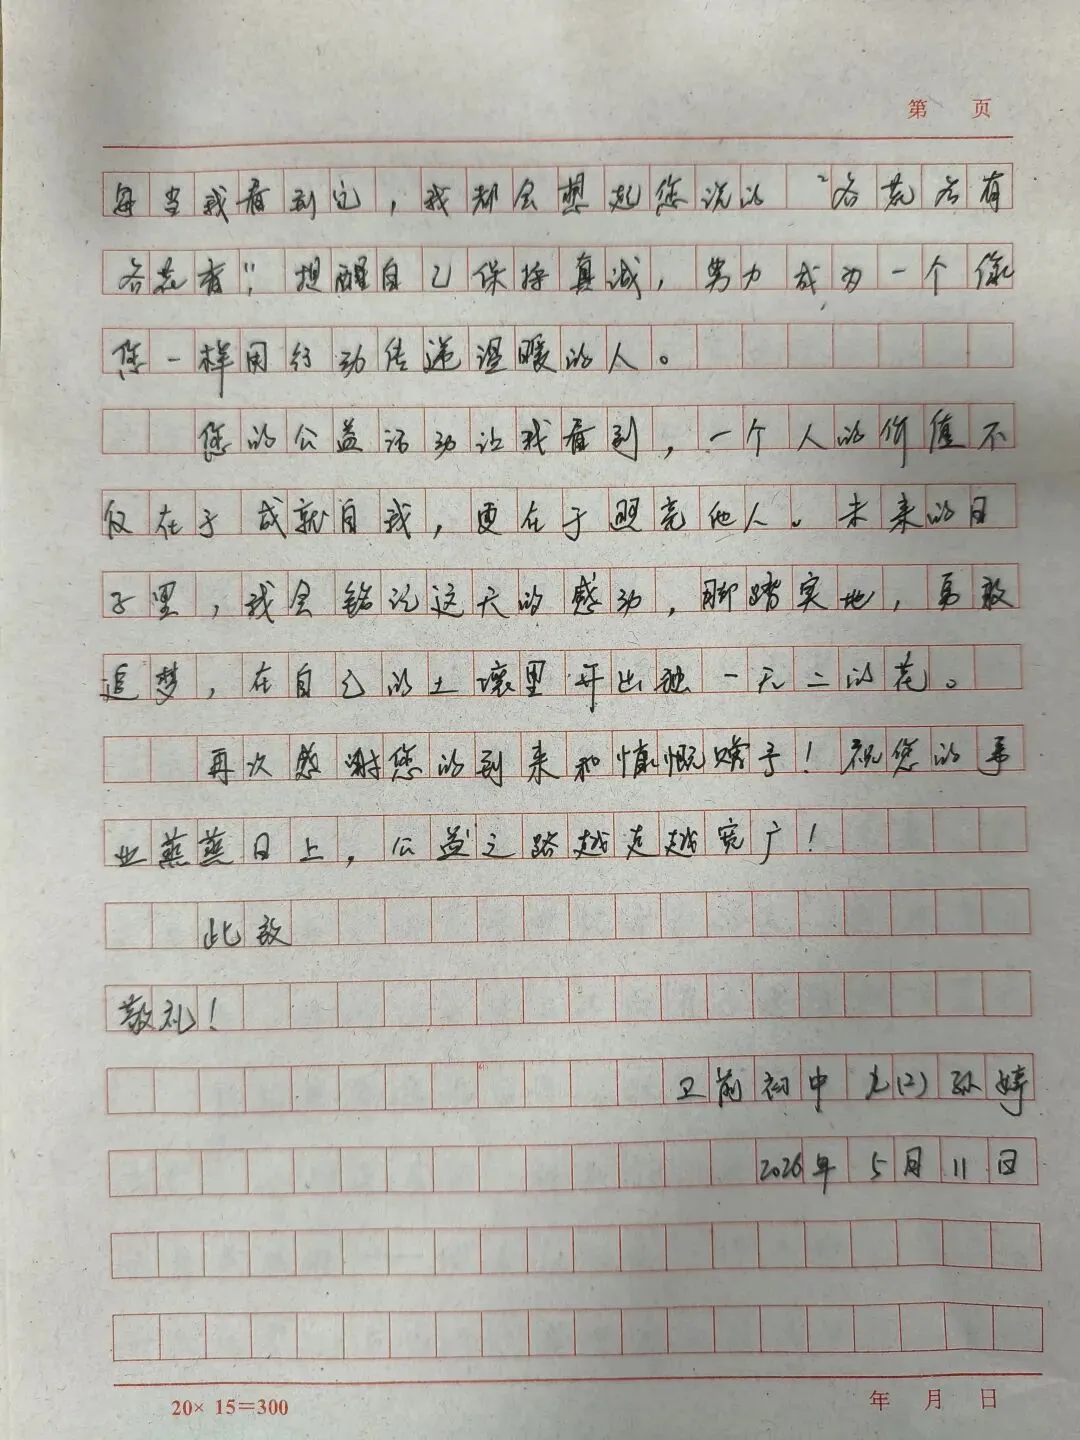 第 页
每当我看到它，我都会想起您说的“各花各有
各花香”，提醒自己保持真诚，努力成为一个像
您一样用行动传递温暖的人。
您的公益活动让我看到，一个人的价值不
仅在于成就自我，更在于照亮他人。未来的日
子里，我会铭记这天的感动，脚踏实地，勇敢
追梦，在自己的土壤里开出独一无二的花。
再次感谢您的到来和慷慨赠予！祝您的事
业蒸蒸日上，公益之路越走越宽广！
此致
敬礼！
卫前初中 九(2) 孙婷
2026年 5月 11日
20×15=300 年 月 日